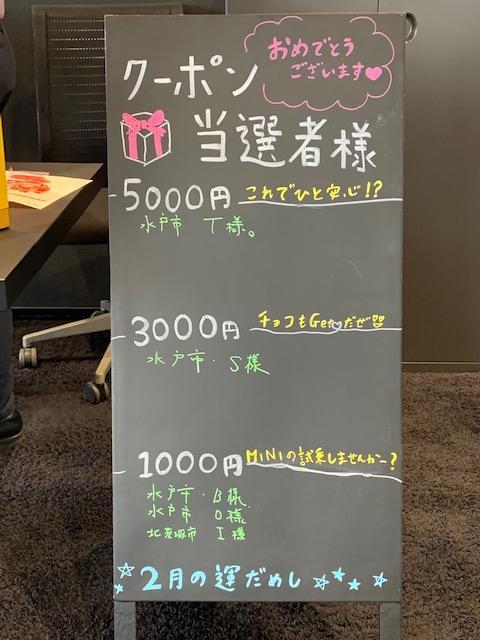 おめでとう
ございます
クーポン
当選者様
5000円 これでひと安心!?
水戸市 T様。
3000円 チョコもGetだぜ
水戸市・S様
1000円 MINIの試乗しませんかー?
水戸市・B様
水戸市 O様
北茨城市 I様
2月の運だめし